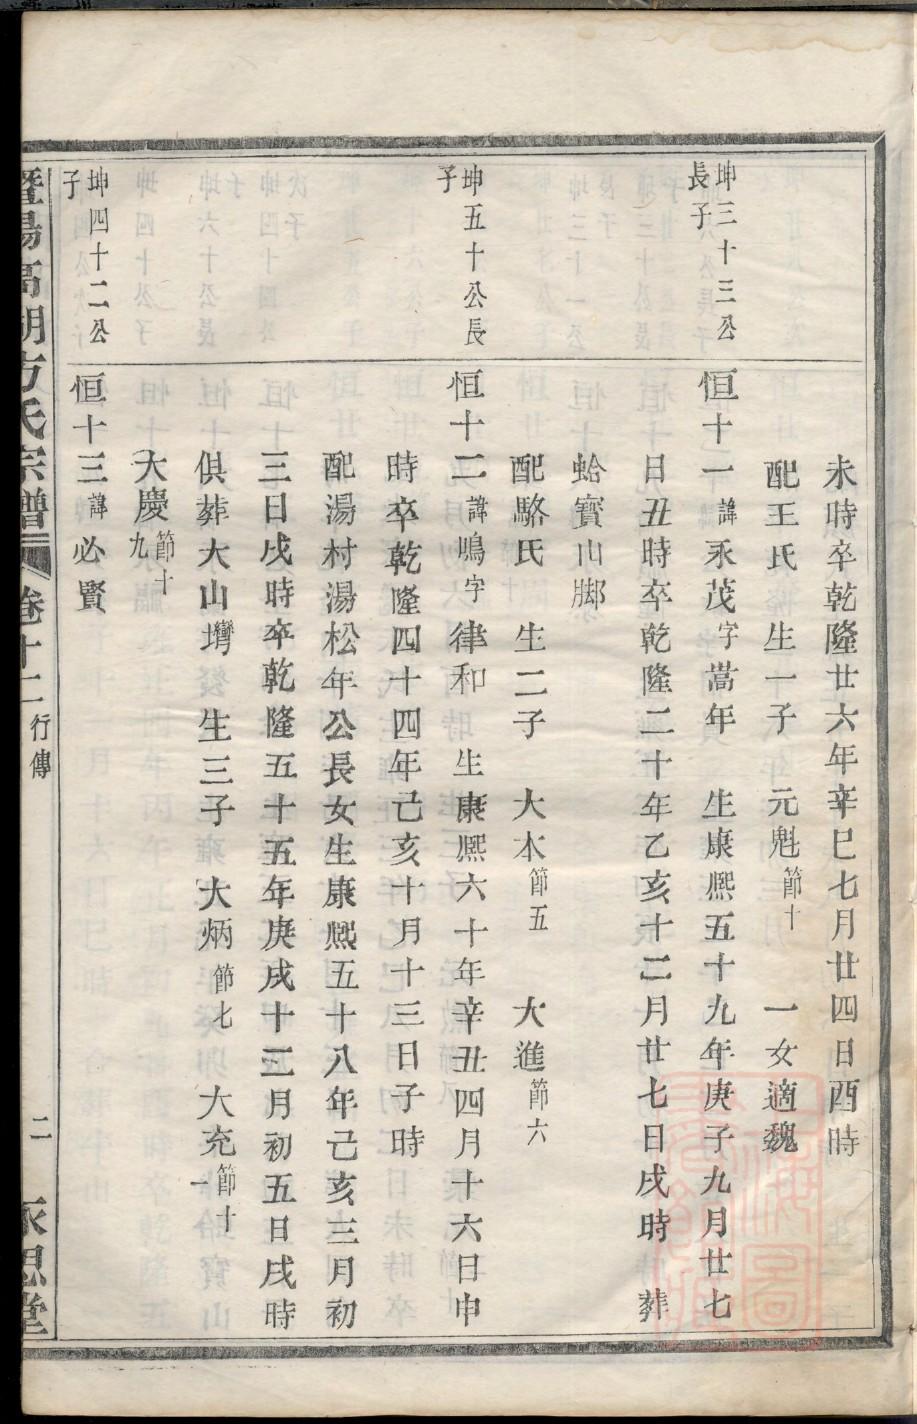 未時卒乾隆廿六年辛巳七月廿四日酉時
配王氏 生一子 元魁節十 一女適魏
坤三十三公長子
恒十一諱永茂字嵩年 生康熈五十九年庚子九月廿七
日丑時卒乾隆二十年乙亥十二月廿七日戌時 葬
蛤寶山脚
配駱氏 生二子 大本節五 大進節六
坤五十公長子
恒十二諱鳴字律和 生康熈六十年辛丑四月十六日申
時卒乾隆四十四年己亥十月十三日子時
配湯村湯松年公長女生康熈五十八年己亥三月初
三日戌時卒乾隆五十五年庚戌十二月初五日戌時
俱葬大山塆 生三子 大炳節七 大充節十一
大慶節十九
坤四十二公子
恒十三諱必賢
暨陽高湖方氏宗譜 卷十二 行傳 二 永思堂